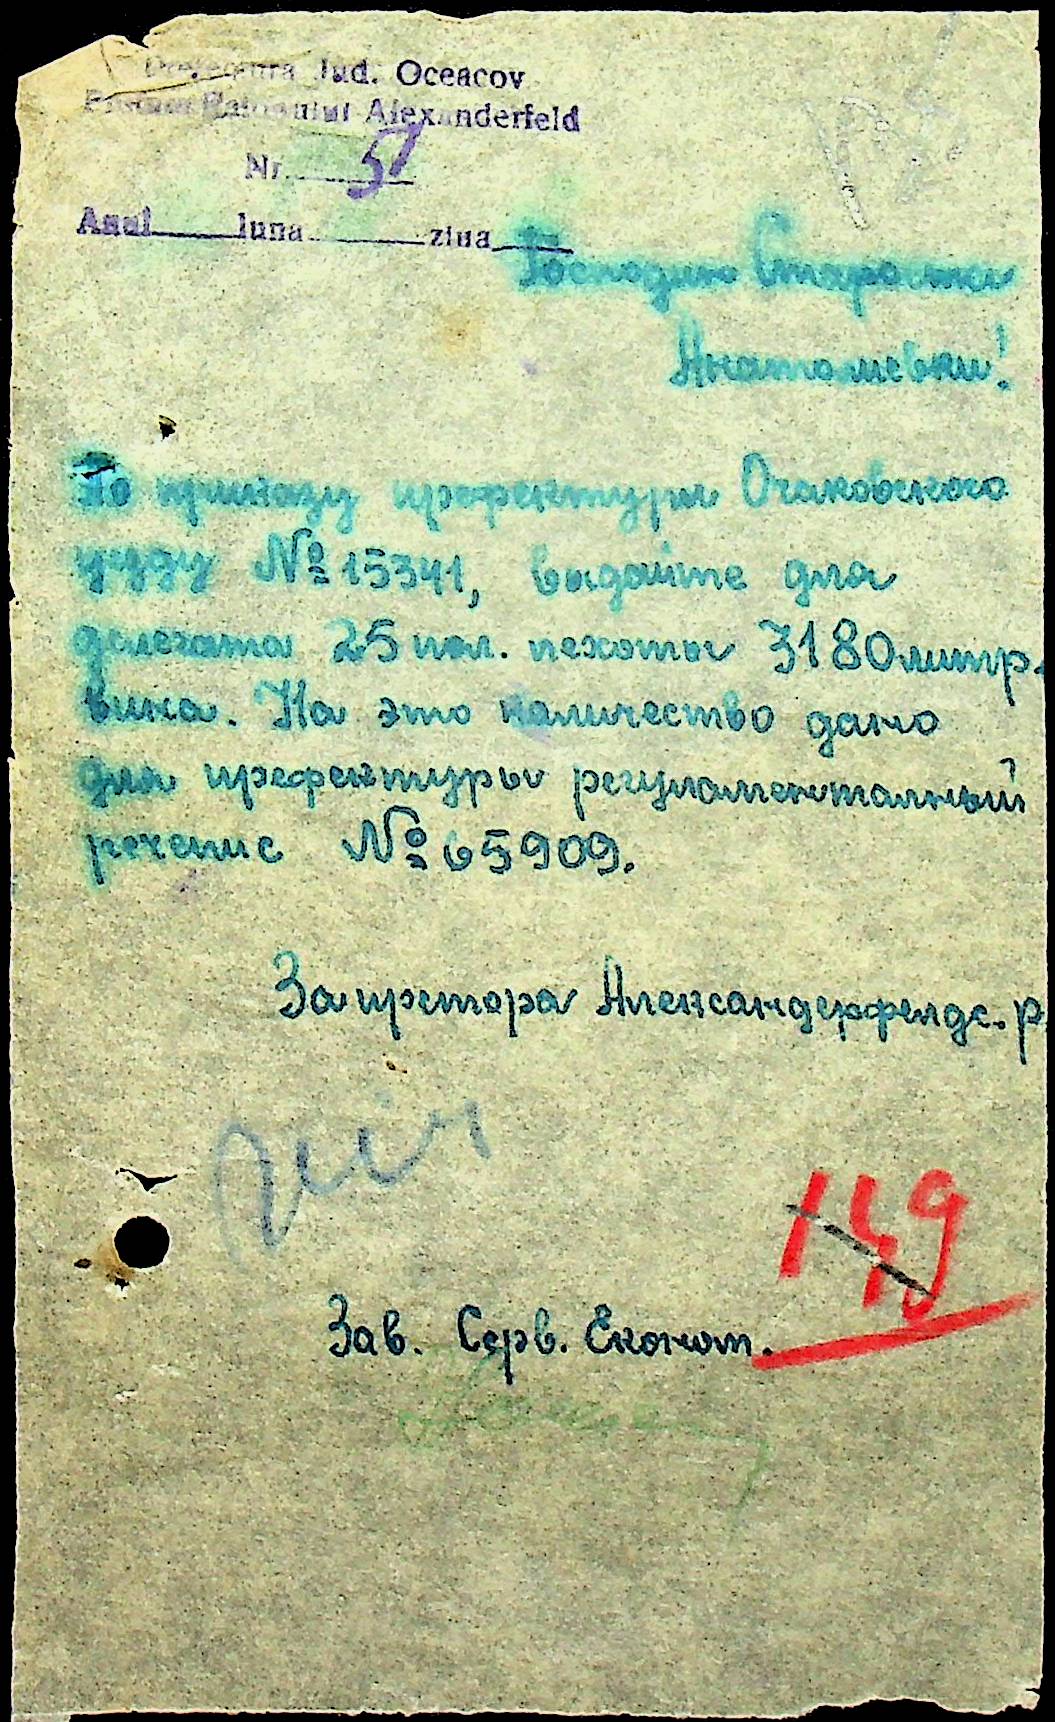 Prefectura Jud. Oceacov
Pretura Raionului Alexanderfeld
Nr. 51
Anul luna ziua
Господин Староста
Анатолиевки!
По приказу префектуры Очаковского
уезду № 15341, выдайте для
делегата 25 пол. пехоты 3180 литр.
вина. На это количество дано
для префектуры регуламенталный
речепис № 65909.
За претора Александерфелдс. р.
149
Зав. Серв. Економ.